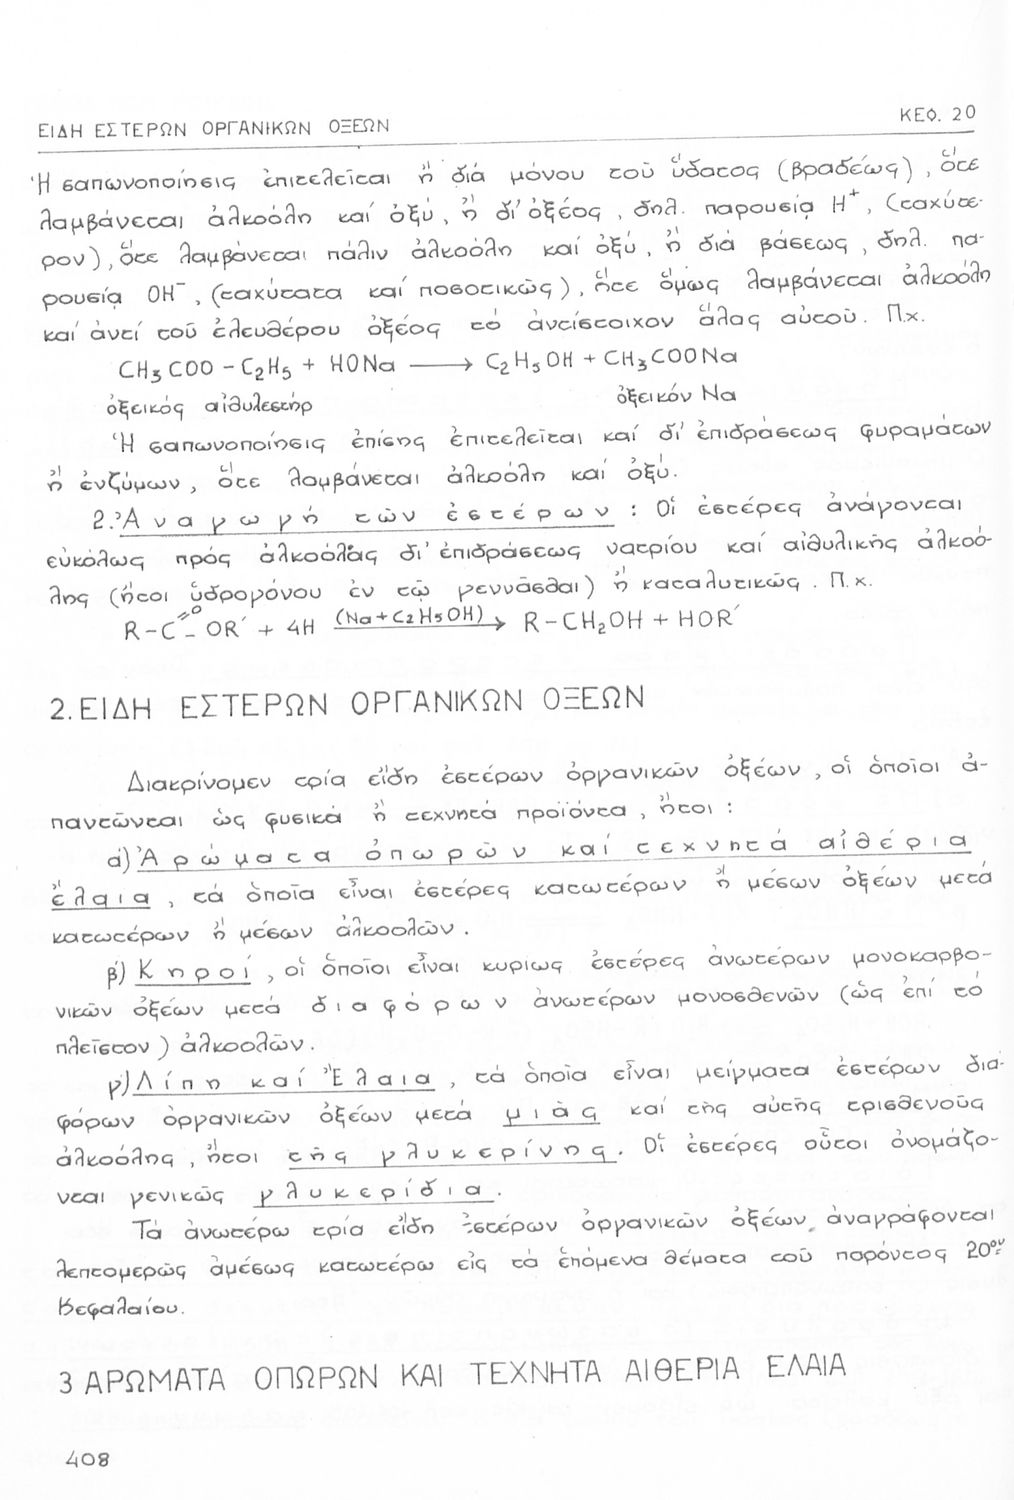 ΕΙΔΗ ΕΣΤΕΡΩΝ ΟΡΓΑΝΙΚΩΝ ΟΞΕΩΝ ΚΕΦ. 20
Ἡ σαπωνοποίησις ἐπιτελεῖται ἤ διά μόνου τοῦ ὕδατος (βραδέως), ὅτε
λαμβάνεται ἀλκοόλη καί ὀξύ, ἤ δι' ὀξέος, δηλ. παρουσίᾳ H⁺, (ταχύτε-
ρον), ὅτε λαμβάνεται πάλιν ἀλκοόλη καί ὀξύ, ἤ διά βάσεως, δηλ. πα-
ρουσίᾳ OH⁻, (ταχύτατα καί ποσοτικῶς), ὅτε ὅμως λαμβάνεται ἀλκοόλη
καί ἀντί τοῦ ἐλευθέρου ὀξέος τό ἀντίστοιχον ἅλας αὐτοῦ. Π.χ.
CH₃COO – C₂H₅ + HONa ⟶ C₂H₅OH + CH₃COONa
ὀξεικός αἰθυλεστήρ ὀξεικόν Na
Ἡ σαπωνοποίησις ἐπίσης ἐπιτελεῖται καί δι' ἐπιδράσεως φυραμάτων
ἤ ἐνζύμων, ὅτε λαμβάνεται ἀλκοόλη καί ὀξύ.
2. Ἀναγωγή τῶν ἐστέρων : Οἱ ἐστέρες ἀνάγονται
εὐκόλως πρός ἀλκοόλας δι' ἐπιδράσεως νατρίου καί αἰθυλικῆς ἀλκοό-
λης (ἤτοι ὑδρογόνου ἐν τῷ γεννᾶσθαι) ἤ καταλυτικῶς. Π.χ.
R–C=O–OR' + 4H (Na+C₂H₅OH)⟶ R–CH₂OH + HOR'
2. ΕΙΔΗ ΕΣΤΕΡΩΝ ΟΡΓΑΝΙΚΩΝ ΟΞΕΩΝ
Διακρίνομεν τρία εἴδη ἐστέρων ὀργανικῶν ὀξέων, οἱ ὁποῖοι ἀ-
παντῶνται ὡς φυσικά ἤ τεχνητά προϊόντα, ἤτοι :
α) Ἀρώματα ὀπωρῶν καί τεχνητά αἰθέρια
ἔλαια, τά ὁποῖα εἶναι ἐστέρες κατωτέρων ἤ μέσων ὀξέων μετά
κατωτέρων ἤ μέσων ἀλκοολῶν.
β) Κηροί, οἱ ὁποῖοι εἶναι κυρίως ἐστέρες ἀνωτέρων μονοκαρβο-
νικῶν ὀξέων μετά διαφόρων ἀνωτέρων μονοσθενῶν (ὡς ἐπί τό
πλεῖστον) ἀλκοολῶν.
γ) Λίπη καί Ἔλαια, τά ὁποῖα εἶναι μείγματα ἐστέρων δια-
φόρων ὀργανικῶν ὀξέων μετά μιᾶς καί τῆς αὐτῆς τρισθενοῦς
ἀλκοόλης, ἤτοι τῆς γλυκερίνης. Οἱ ἐστέρες οὗτοι ὀνομάζο-
νται γενικῶς γλυκερίδια.
Τά ἀνωτέρω τρία εἴδη ἐστέρων ὀργανικῶν ὀξέων, ἀναγράφονται
λεπτομερῶς ἀμέσως κατωτέρω εἰς τά ἑπόμενα θέματα τοῦ παρόντος 20ου
Κεφαλαίου.
3 ΑΡΩΜΑΤΑ ΟΠΩΡΩΝ ΚΑΙ ΤΕΧΝΗΤΑ ΑΙΘΕΡΙΑ ΕΛΑΙΑ
408